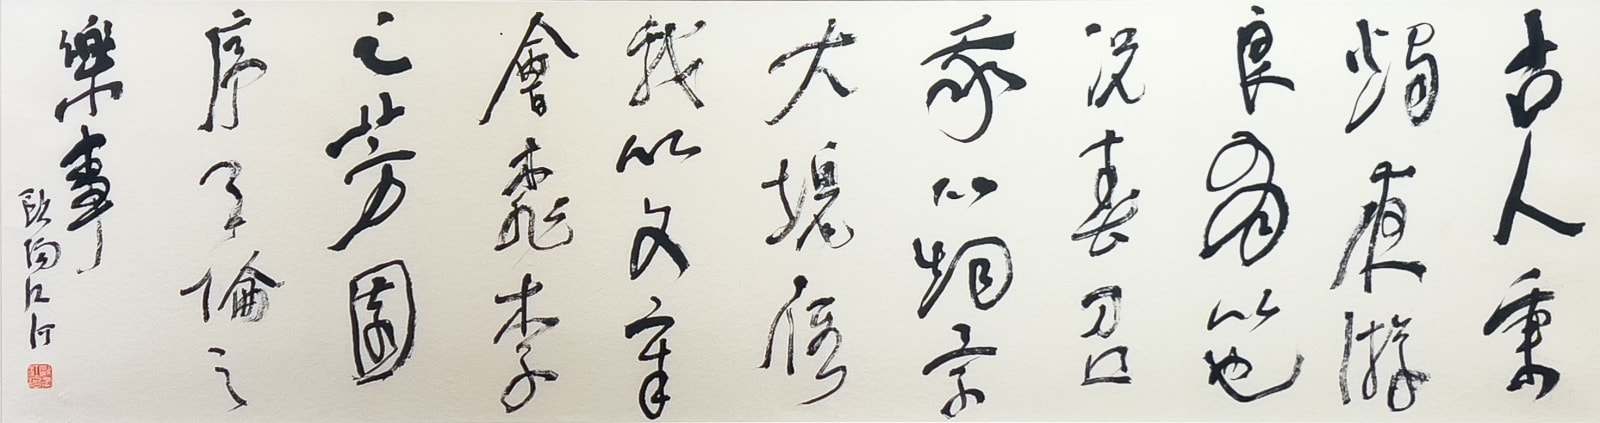 古人秉
燭夜游
良有以也
况春召
我以烟景
大塊假
我以文章
會桃李
之芳園
序天倫之
樂事
欧陽江河